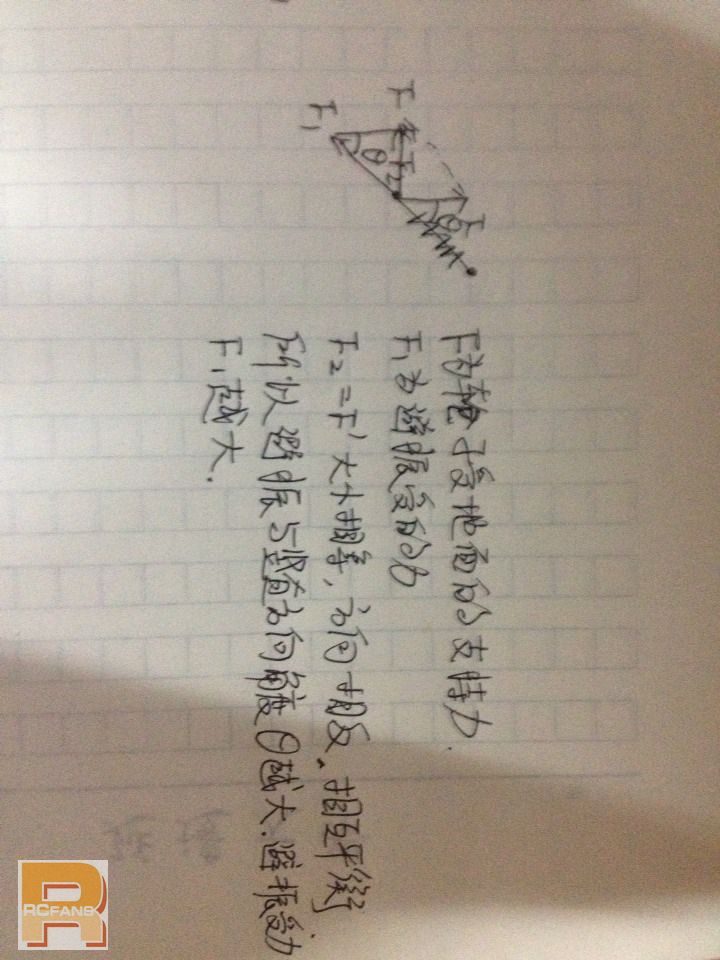 F
F₁
θ
F₂
F
θ
F为轮子受地面的支持力.
F₁为避振受的力
F₂=F'大小相等,方向相反。相互平衡
所以避振与竖直方向角度θ越大.避振受力
F₁越大.
RCFANS